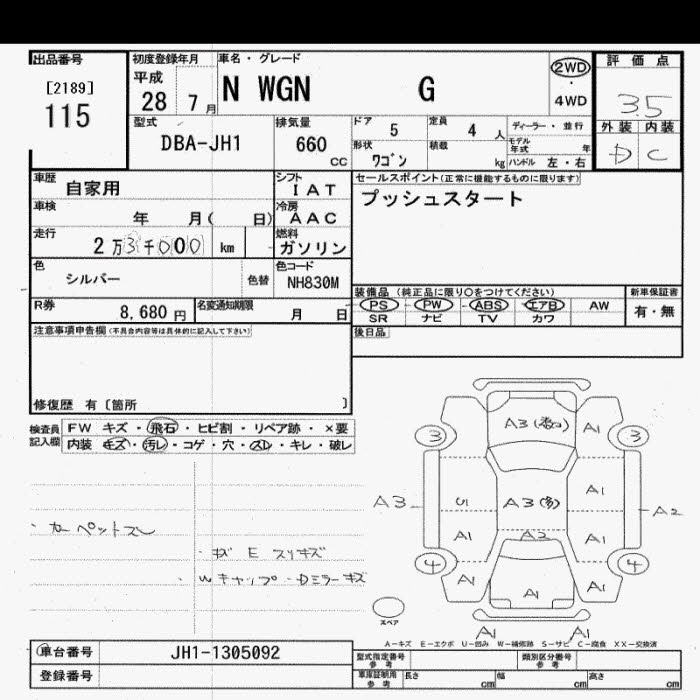 出品番号 初度登録年月 車名・グレード 評価点
[2189] 平成 2WD
115 28 7月 N WGN G ・ 4WD 3.5
型式 排気量 ドア 5 定員 4人 ディーラー・並行 外装 内装
DBA-JH1 660 cc 形状 ワゴン 積載 kg モデル年式 年 ハンドル 左・右 D C
車歴 自家用 シフト IAT セールスポイント(正常に機能するものに限ります)
車検 年 月( 日) 冷房 AAC プッシュスタート
走行 2万3千000 km 燃料 ガソリン
色 シルバー 色替 色コード NH830M
装備品 (純正品に限り○をつけてください) 新車保証書
R券 8,680円 名変通知期限 月 日 PS PW ABS エアB AW 有・無
SR ナビ TV カワ
注意事項申告欄(不具合内容等は具体的に記入して下さい) 後日品
修復歴 有〔箇所 〕
検査員記入欄 FW キズ・飛石・ヒビ割・リペア跡・×要
内装 キズ・汚レ・コゲ・穴・スレ・キレ・破レ
A3 A1
3 A1 3
A3 U1 A3 A1 A2
A1 A2 A1
4 A1 A1 A1 4
・カーペットスレ
・キズ E スリキズ
・Wキャップ・Dミラーキズ
スペア
A1 A1
A-キズ E-エクボ U-凹み W-補修跡 S-サビ C-腐食 XX-交換済
車台番号 JH1-1305092 型式指定番号 参考 類別区分番号 参考
登録番号 車庫証明用 参考 長さ cm 幅 cm 高さ cm